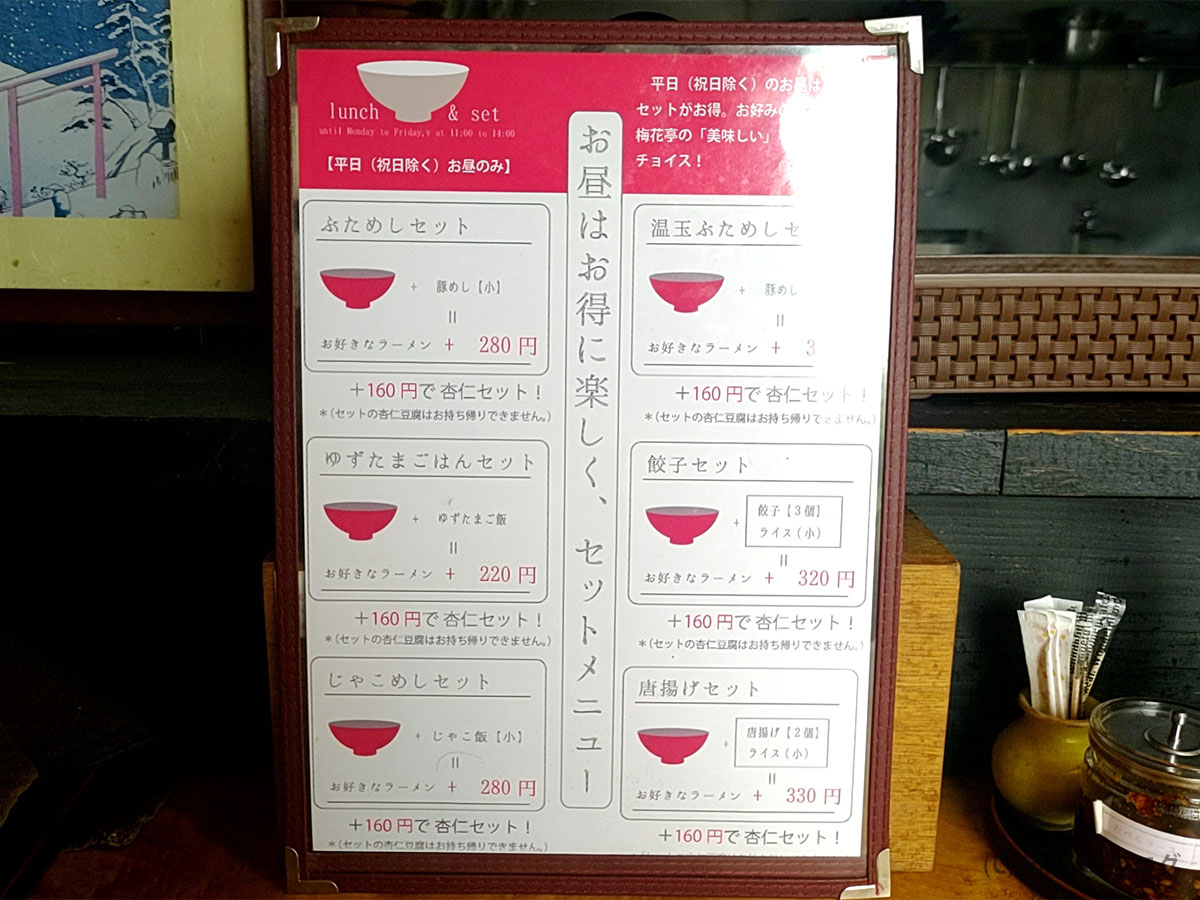 lunch & set
until Monday to Friday,v at 11:00 to 14:00
【平日（祝日除く）お昼のみ】
平日（祝日除く）のお昼は
セットがお得。お好みの
梅花亭の「美味しい」
チョイス！
お昼はお得に楽しく、セットメニュー
ぶためしセット
+ 豚めし【小】
=
お好きなラーメン + 280 円
＋160 円で 杏仁セット！
＊（セットの杏仁豆腐はお持ち帰りできません。）
ゆずたまごはんセット
+ ゆずたまご飯
=
お好きなラーメン + 220 円
＋160 円で 杏仁セット！
＊（セットの杏仁豆腐はお持ち帰りできません。）
じゃこめしセット
+ じゃこ飯【小】
=
お好きなラーメン + 280 円
＋160 円で 杏仁セット！
＊（セットの杏仁豆腐はお持ち帰りできません。）
温玉ぶためしセ
+ 豚めし
=
お好きなラーメン + 3
＋160 円で 杏仁セット！
＊（セットの杏仁豆腐はお持ち帰りできません。）
餃子セット
+ 餃子【３個】
ライス（小）
=
お好きなラーメン + 320 円
＋160 円で 杏仁セット！
＊（セットの杏仁豆腐はお持ち帰りできません。）
唐揚げセット
+ 唐揚げ【２個】
ライス（小）
=
お好きなラーメン + 330 円
＋160 円で 杏仁セット！